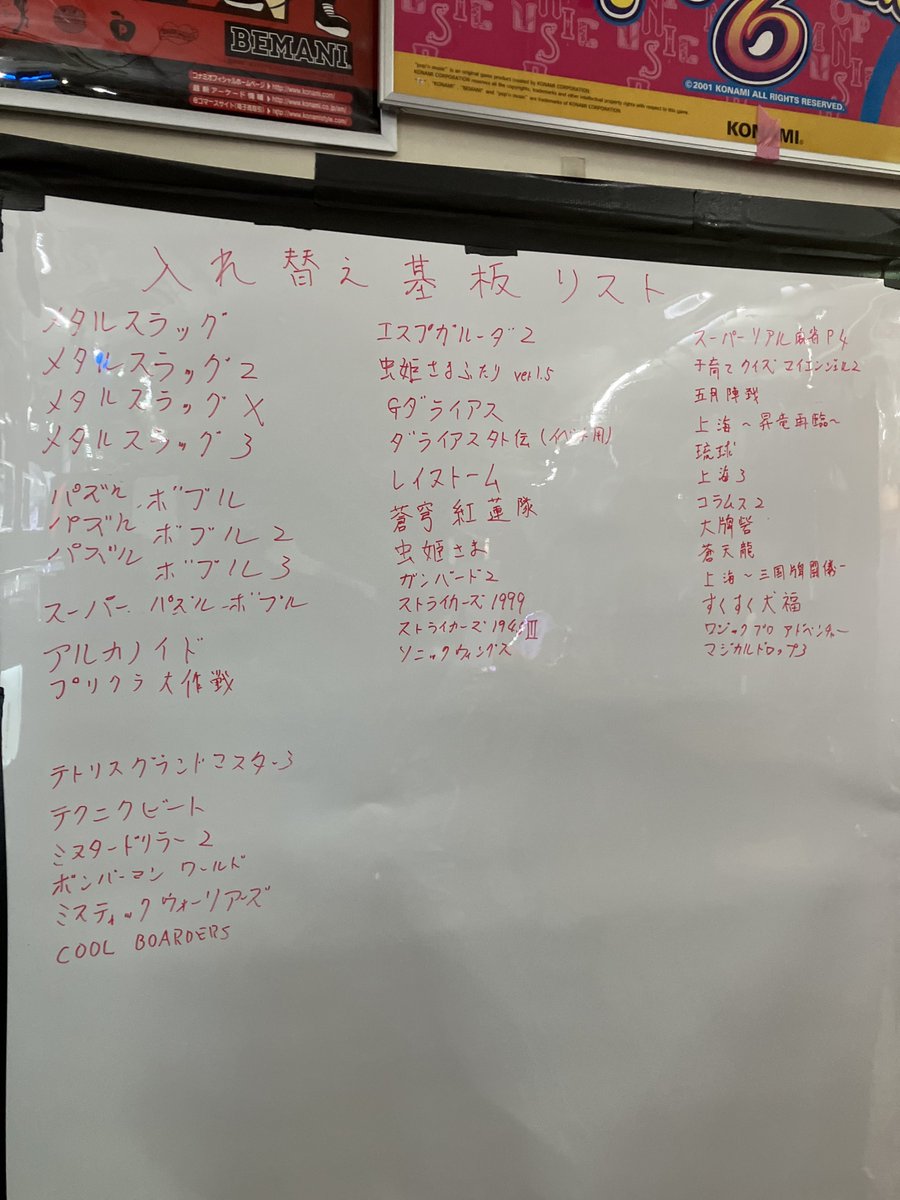 BEMANI
コナミオフィシャルホームページ ▶http://www.konami.co.jp
最新アーケード情報
"pop'n music" is an original game product created by KONAMI CORPORATION.
KONAMI CORPORATION reserves all the copyrights, trademarks and other intellectual property rights with respect to this game.
6
©2001 KONAMI ALL RIGHTS RESERVED.
KONAMI
入れ替え基板リスト
メタルスラッグ
メタルスラッグ2
メタルスラッグX
メタルスラッグ3
パズルボブル
パズルボブル2
パズルボブル3
スーパーパズルボブル
アルカノイド
プリクラ大作戦
テトリスグランドマスター3
テクニクビート
ミスタードリラー2
ボンバーマン ワールド
ミスティックウォーリアーズ
COOL BOARDERS
エスプガルーダ2
虫姫さまふたり ver1.5
Gダライアス
ダライアス外伝(イベント用)
レイストーム
蒼穹紅蓮隊
虫姫さま
ガンバード2
ストライカーズ1999
ストライカーズ194Ⅲ
ソニックウィングス
スーパーリアル麻雀P4
子育てクイズマイエンジェル2
五月陣戦
上海~昇竜再臨~
琉球
上海3
コラムス2
大牌砦
蒼天龍
上海~三国牌闘儀~
すくすく犬福
マジカルドロップ3